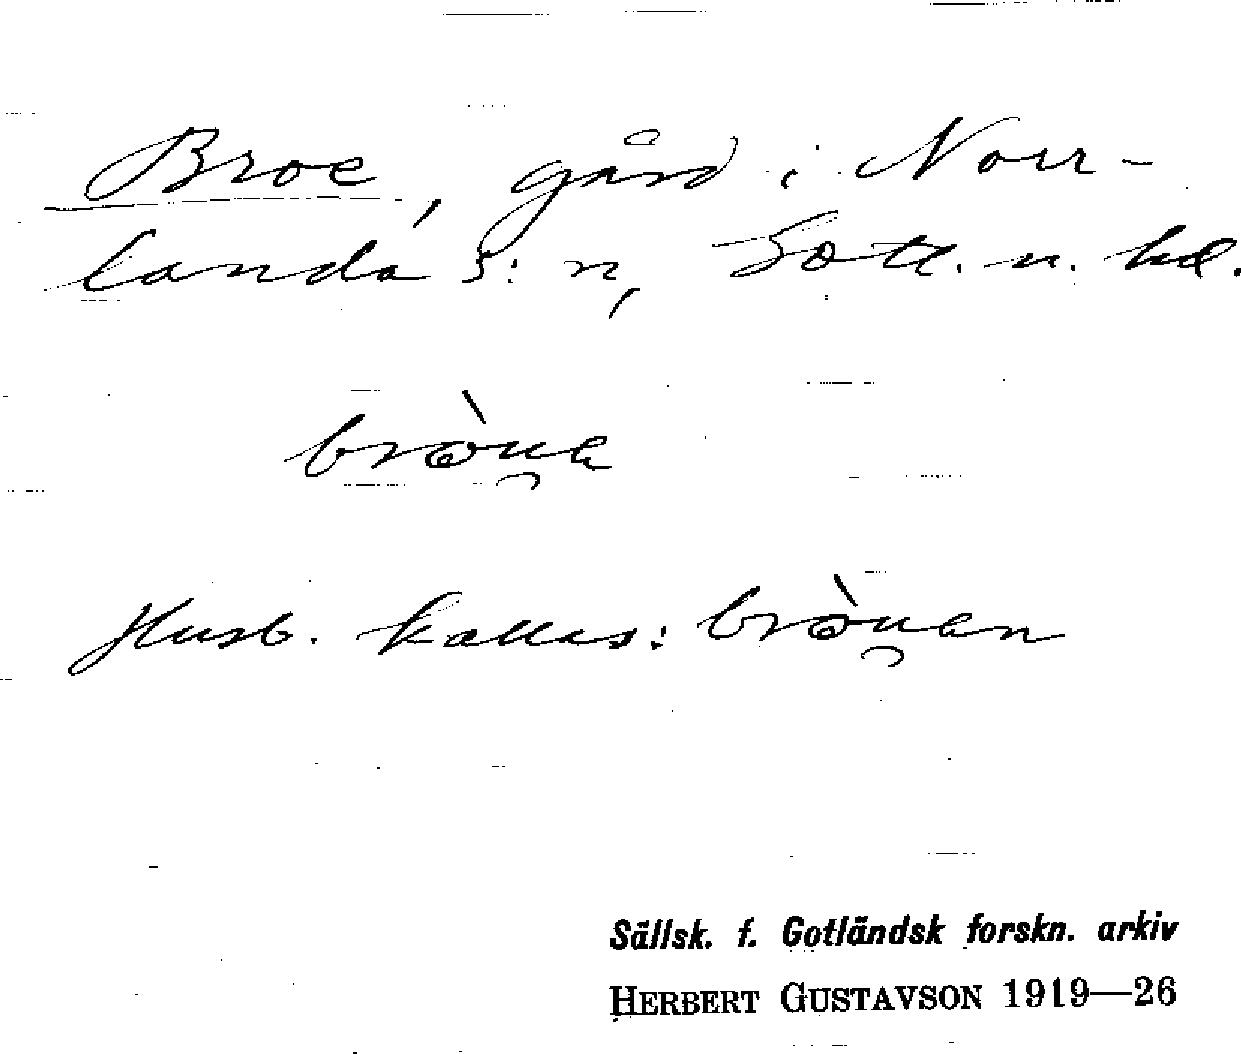 Broe, gård i Norr-
landa s:n, Gotl. n. hd.
bròu̯a
Husb. kallas: bròu̯an
Sällsk. f. Gotländsk forskn. arkiv
HERBERT GUSTAVSON 1919—26